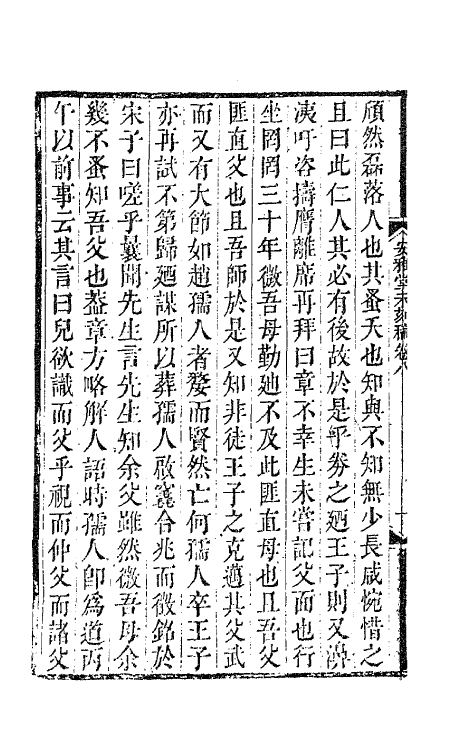 頎然磊落人也其蚤夭也知與不知無少長咸惋惜之
且曰此仁人其必有後故於是乎劵之廼王子則又涕
洟吁咨擣膺離席再拜曰章不幸生未嘗記父面也行
坐罔罔三十年微吾母勤廸不及此匪直母也且吾父
匪直父也且吾師於是又知非徒王子之克邁其父武
而又有大節如趙孺人者嫠而賢然亡何孺人卒王子
亦再試不第歸廼謀所以葬孺人啟窆合兆而徵銘於
宋子曰嗟乎曩聞先生言先生知余父雖然微吾母余
幾不蚤知吾父也葢章方略解人語時孺人卽爲道丙
午以前事云其言曰兒欲識而父乎視而仲父而諸父
安雅堂未刻稿卷八